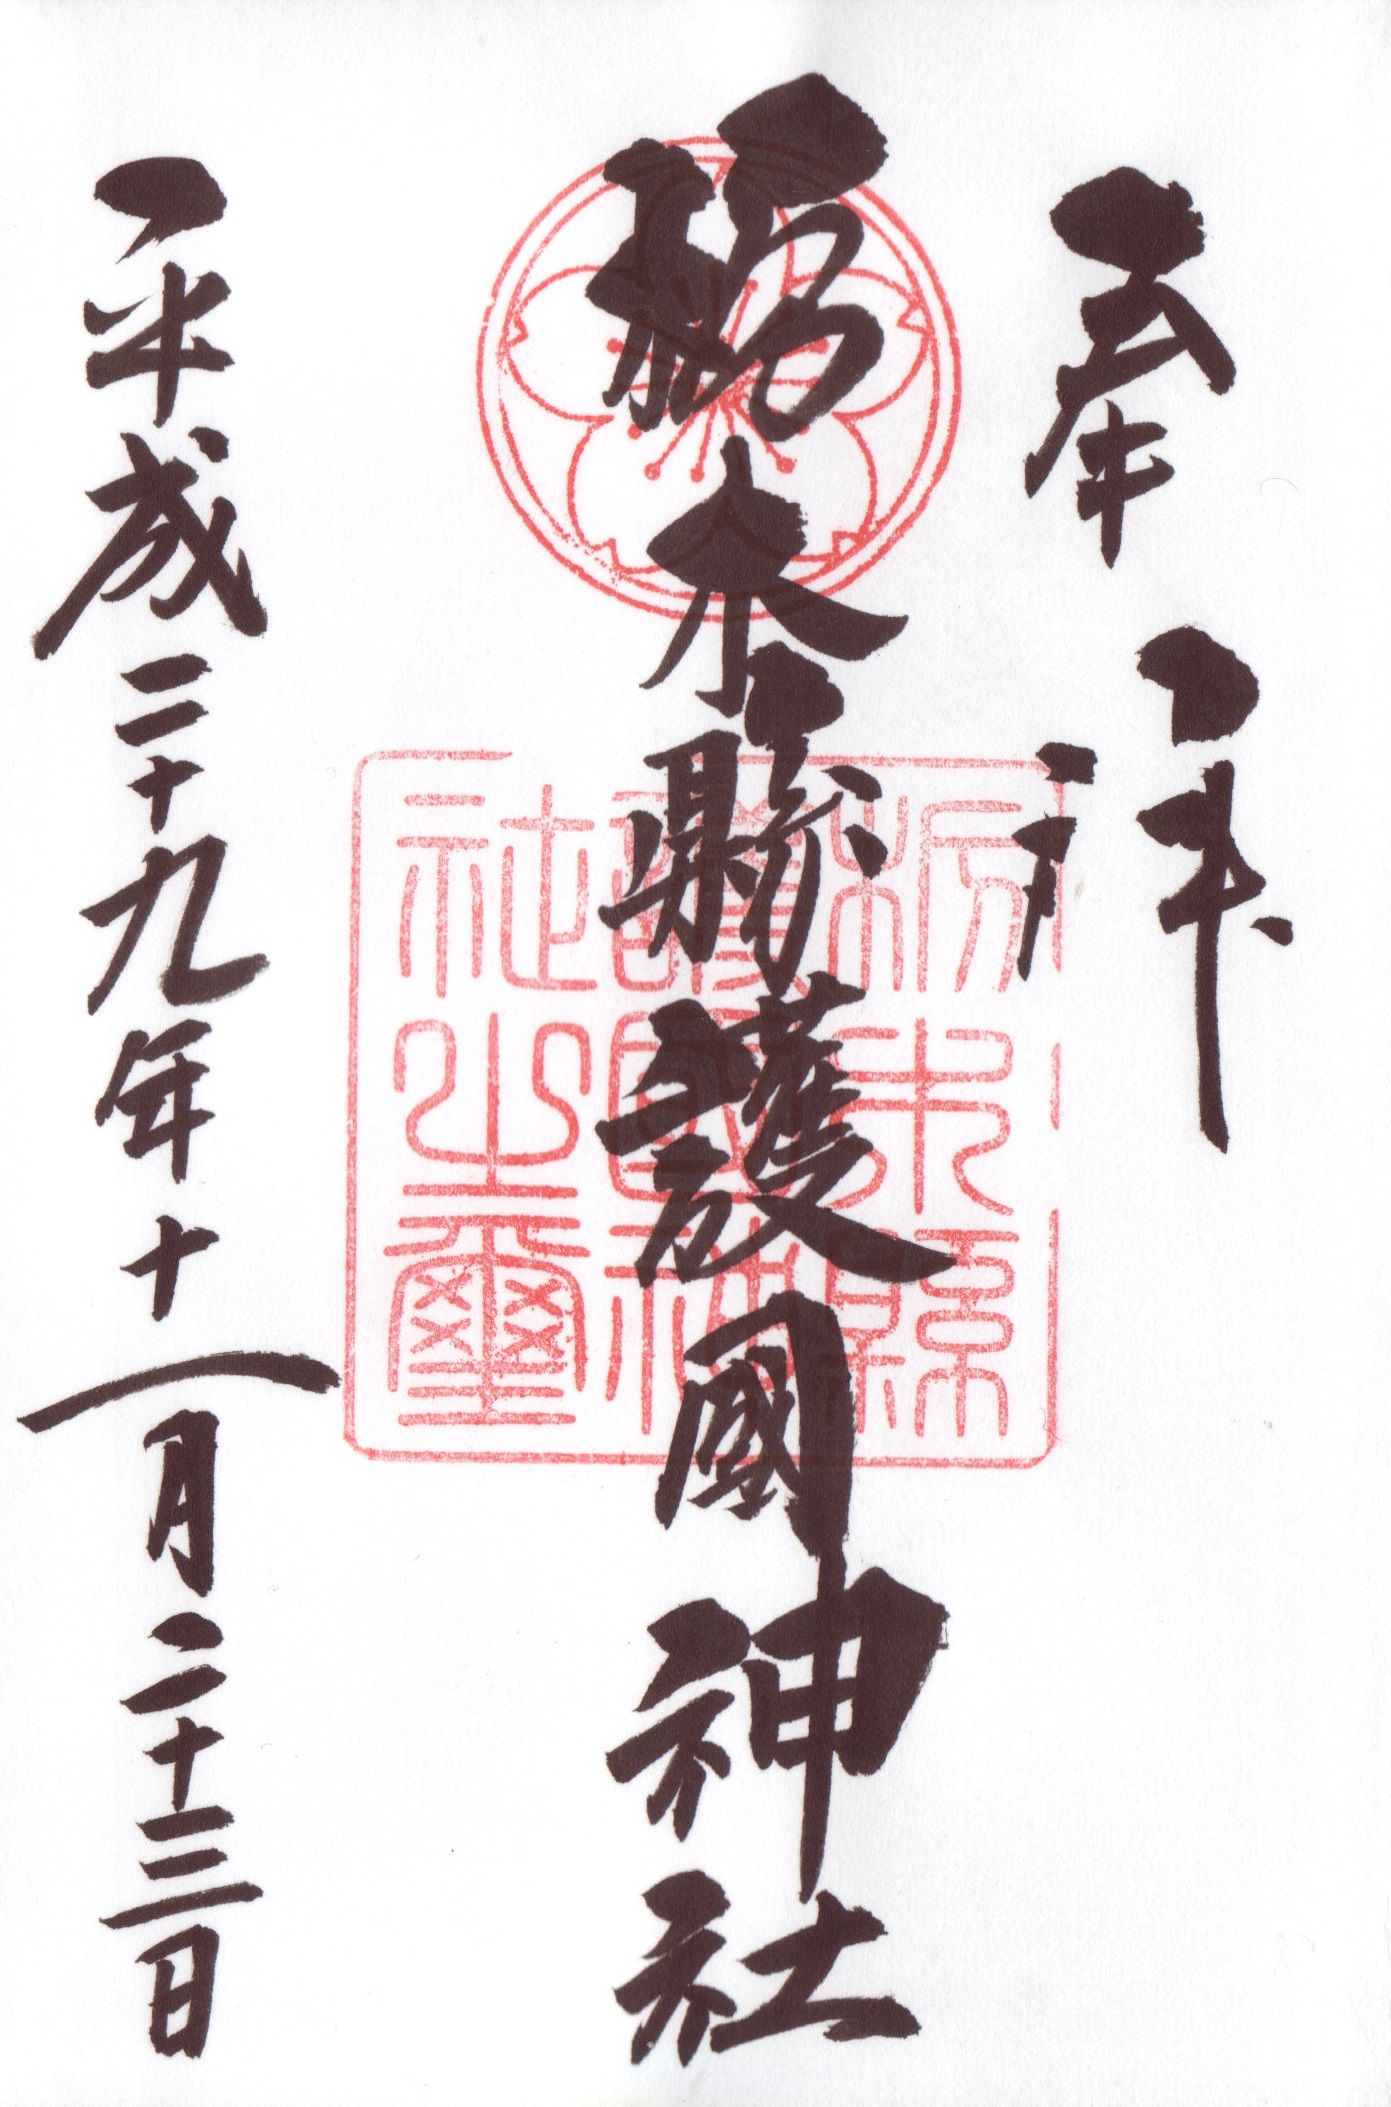 奉拝
栃木縣護國神社
栃木縣
護國神
社之璽
平成二十九年十一月二十三日